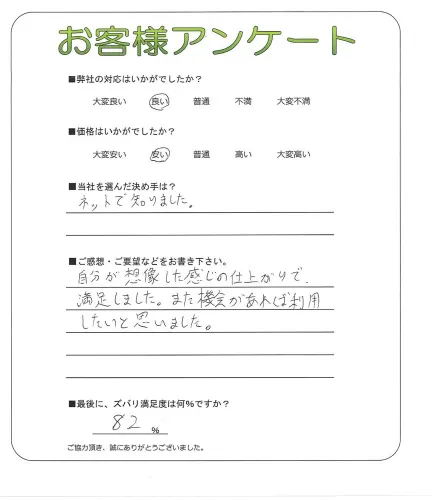 お客様アンケート
■弊社の対応はいかがでしたか？
大変良い 良い 普通 不満 大変不満
■価格はいかがでしたか？
大変安い 安い 普通 高い 大変高い
■当社を選んだ決め手は？
ネットで知りました。
■ご感想・ご要望などをお書き下さい。
自分が想像した感じの仕上がりで、
満足しました。また機会があれば利用
したいと思いました。
■最後に、ズバリ満足度は何%ですか？
82 %
ご協力頂き、誠にありがとうございました。